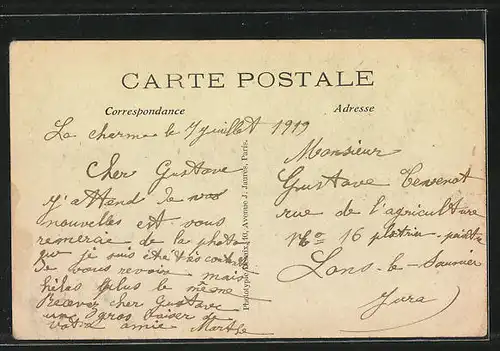 CARTE POSTALE
Correspondance
Adresse
La charme le 7 juillet 1919
Cher Gustave
J'attend de vos
nouvelles est vous
remercie de la photo
que je suis été très contente
de vous revoir mais
hélas plus le même
Recevez cher Gustave
une gros baiser de
votre amie Marthe
Phototypie 40, Avenue J. Jaurès, Paris.
Monsieur
Gustave Thevenot
rue de l'agriculture
No 16 plâtrier-peintre
Lons-le Saunier
Jura